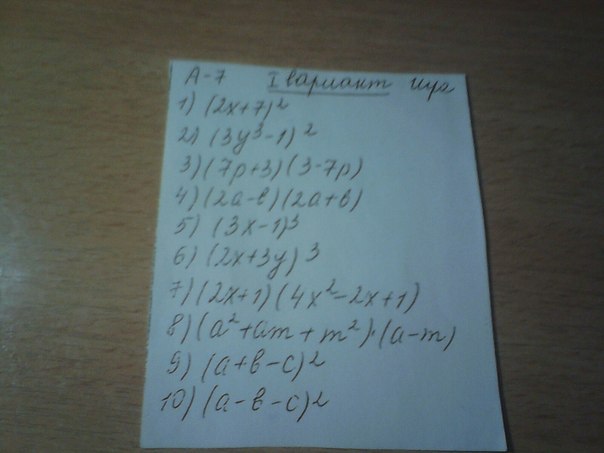 А-7 I вариант
1) (2x+7)²
2) (3y³-1)²
3) (7p+3)(3-7p)
4) (2a-в)(2a+в)
5) (3x-1)³
6) (2x+3y)³
7) (2x+1)(4x²-2x+1)
8) (a²+am+m²)·(a-m)
9) (a+в-c)²
10) (a-в-c)²